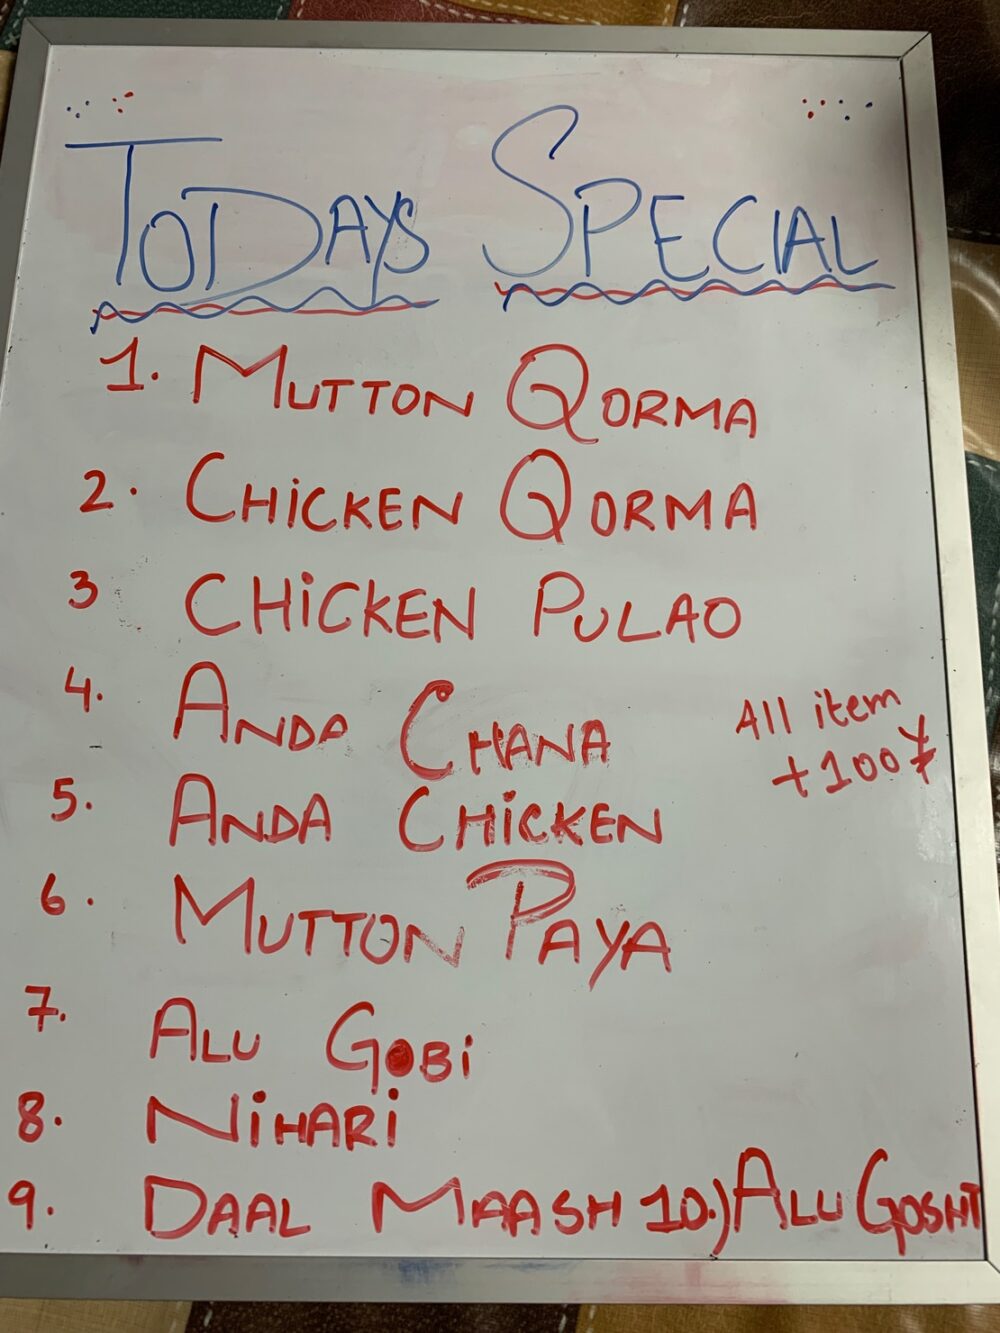 TODAYS SPECIAL
1. MUTTON QORMA
2. CHiCKEN QORMA
3 CHiCKEN PULAO
4. ANDA CHANA
All item
+100¥
5. ANDA CHiCKEN
6. MUTTON PAYA
7. ALU GOBi
8. NiHARi
9. DAAL MAASH 10.) ALU GOSHT